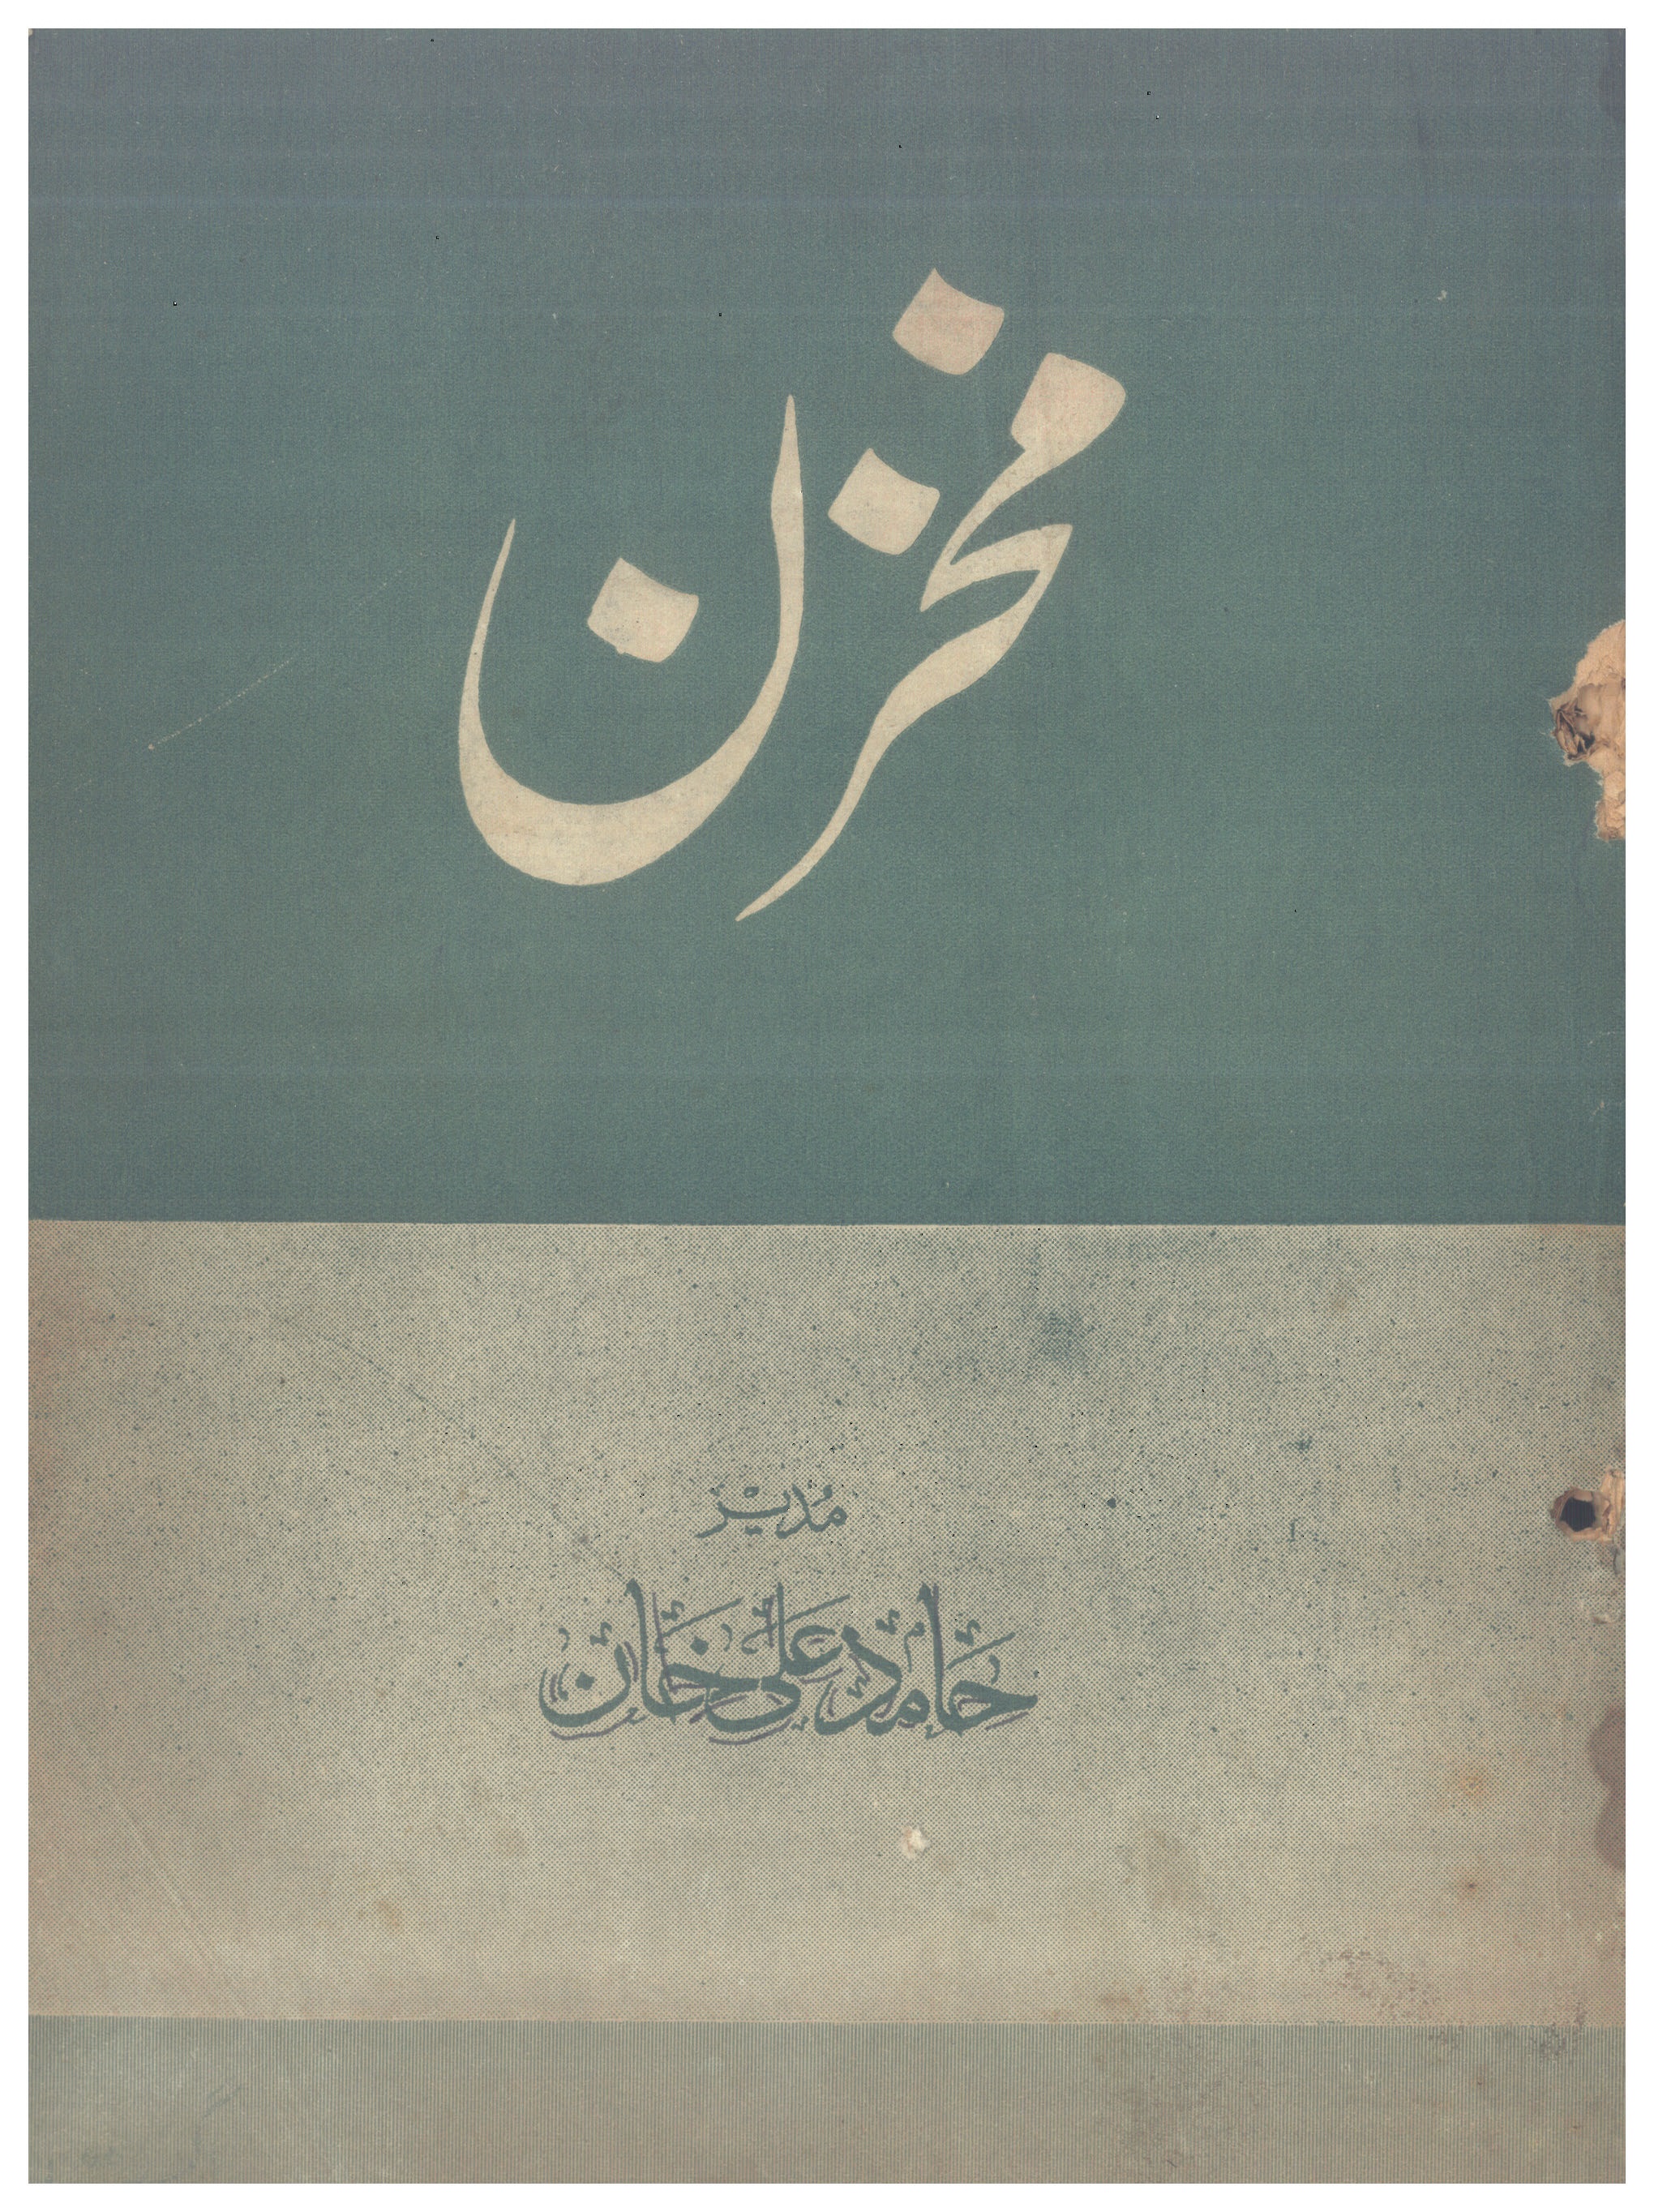 مخزن
مُدیْر
حامد علی خان